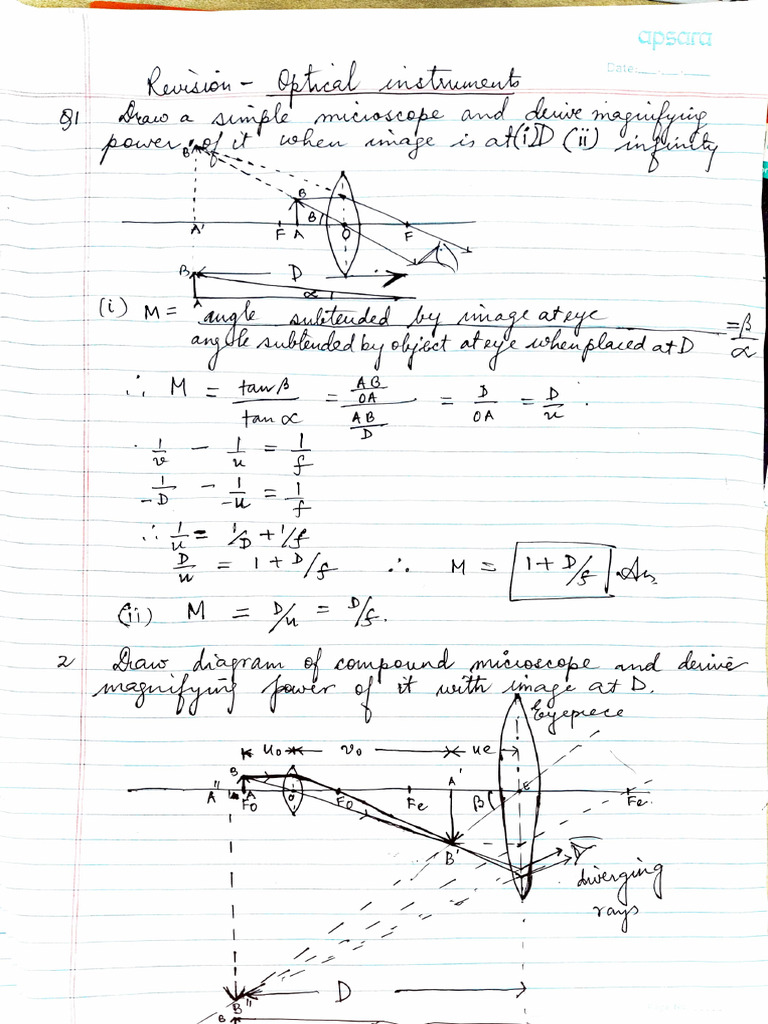 apsara
Date:
Revision - Optical instruments
Q1 Draw a simple microscope and derive magnifying
power of it when image is at (i) D (ii) infinity
B'
B
A' F A β O F
B D
A α
(i) M = angle subtended by image at eye = β
angle subtended by object at eye when placed at D α
∴ M = tan β = AB/OA = D = D
tan α AB/D OA u
1/v - 1/u = 1/f
1/-D - 1/-u = 1/f
∴ 1/u = 1/D + 1/f
D/u = 1 + D/f ∴ M = 1 + D/f . Ans
(ii) M = D/u = D/f.
2 Draw diagram of compound microscope and derive
magnifying power of it with image at D.
Eyepiece
u₀ v₀ ue
B A' E
A'' A F₀ O F₀ Fe β Fe
B'
diverging
rays
B'' D
B